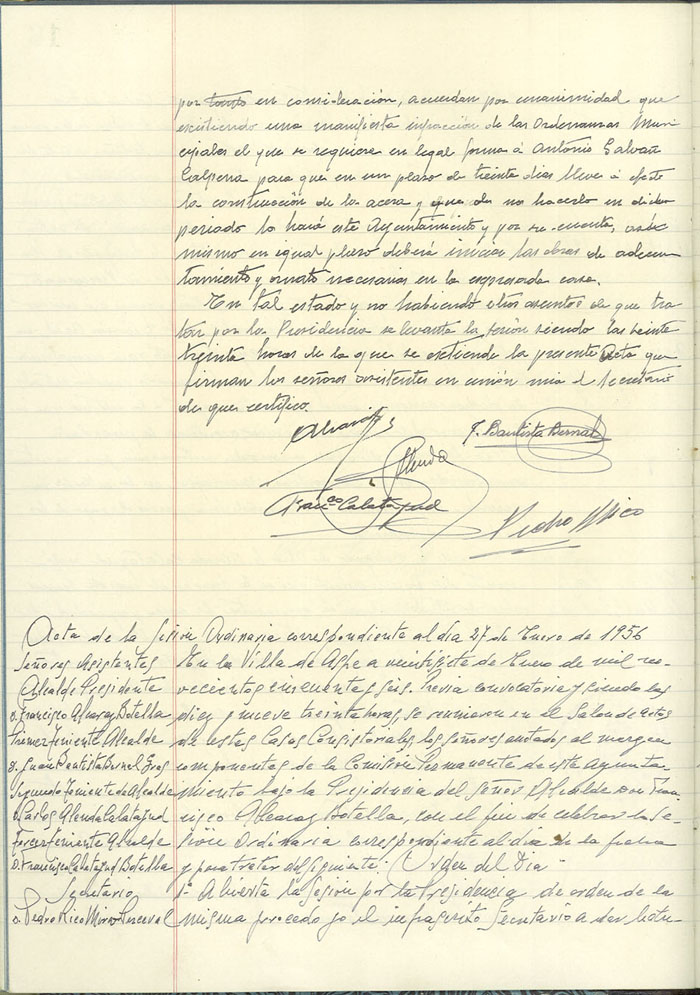 por tanto en consideración, acuerdan por unanimidad que
existiendo una manifiesta infracción de las Ordenanzas Muni-
cipales el que se requiera en legal forma á Antonio Galvañ
Calpena para que en un plazo de treinta días lleve á efecto
la construcción de la acera y que de no hacerlo en dicho
periodo lo hará este Ayuntamiento y por su cuenta, asi-
mismo en igual plazo deberá iniciar las obras de adecen-
tamiento y ornato necesarias en la expresada casa.
En tal estado y no habiendo otros asuntos de que tra-
tar por la Presidencia se levanta la sesion siendo las veinte
treinta horas de la que se extiende la presente Acta que
firman los señores asistentes en unión mia el Secretario
de que certifico.
Alcaraz
J. Bautista Bernal
Alenda
Franco Calatayud
Pedro Rico
Acta de la Sesión Ordinaria correspondiente al dia 27 de Enero de 1956
Señores Asistentes
Alcalde Presidente
D. Francisco Alcaraz Botella
Primer Teniente Alcalde
D. Juan Bautista Bernal
Segundo Teniente de Alcalde
D. Carlos Alenda Calatayud
Tercer Teniente Alcalde
D. Francisco Calatayud Botella
Secretario
D. Pedro Rico
En la Villa de Aspe a veintisiete de Enero de mil no-
vecientos cincuenta y seis. Previa convocatoria y siendo las
diez y nueve treinta horas, se reunieron en el Salon de actos
de estas Casas Consistoriales, los señores anotados al margen
componentes de la Comisión Permanente de este Ayunta-
miento bajo la Presidencia del Señor Alcalde Don Fran-
cisco Alcaraz Botella, con el fin de celebrar la Se-
sión Ordinaria correspondiente al día de la fecha
y para tratar del siguiente: Orden del Dia
1º Abierta la Sesión por la Presidencia de orden de la
misma procedo yo el infrascrito Secretario a dar lectu-